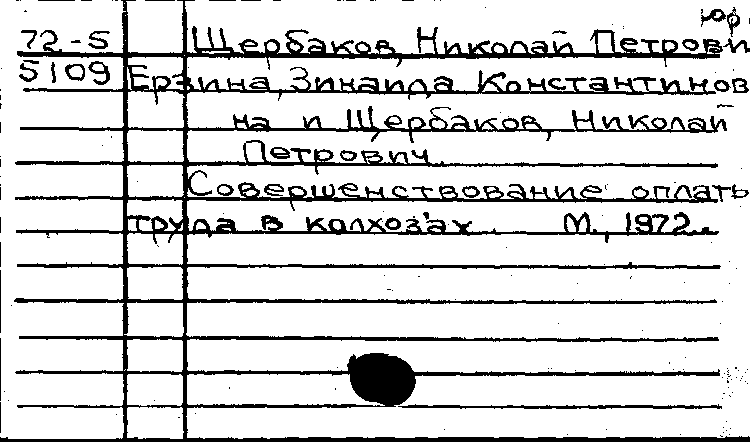 юр.
72-5 Щербаков, Николай Петрови
5109 Ерзина, Зинаида Константинов
на и Щербаков, Николай
Петрович.
Совершенствование оплаты
труда в колхозах. М., 1972.